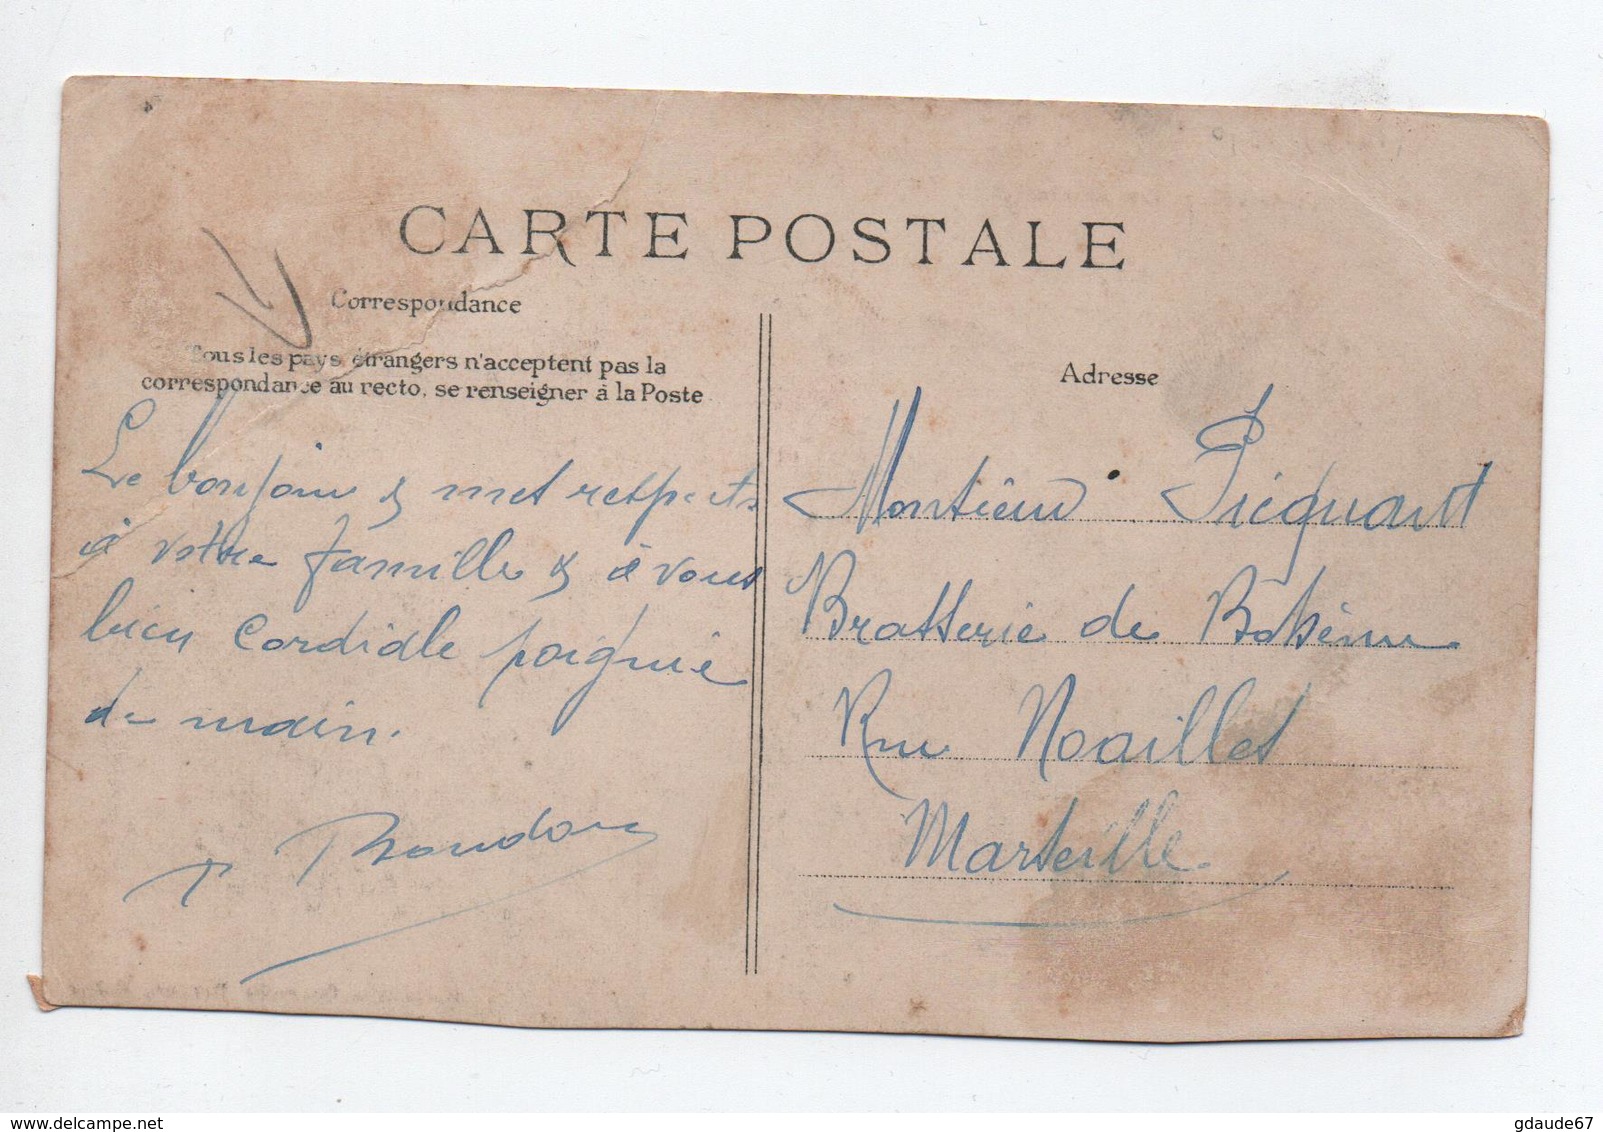 CARTE POSTALE
Correspondance
Tous les pays étrangers n'acceptent pas la
correspondance au recto, se renseigner à la Poste
Le bonjour & mes respects
à votre famille & à vous
bien Cordiale poignié
de main.
Baudon
Adresse
Monsieur Picquart
Brasserie de Bohême
Rue Noailles
Marseille
gdaude67